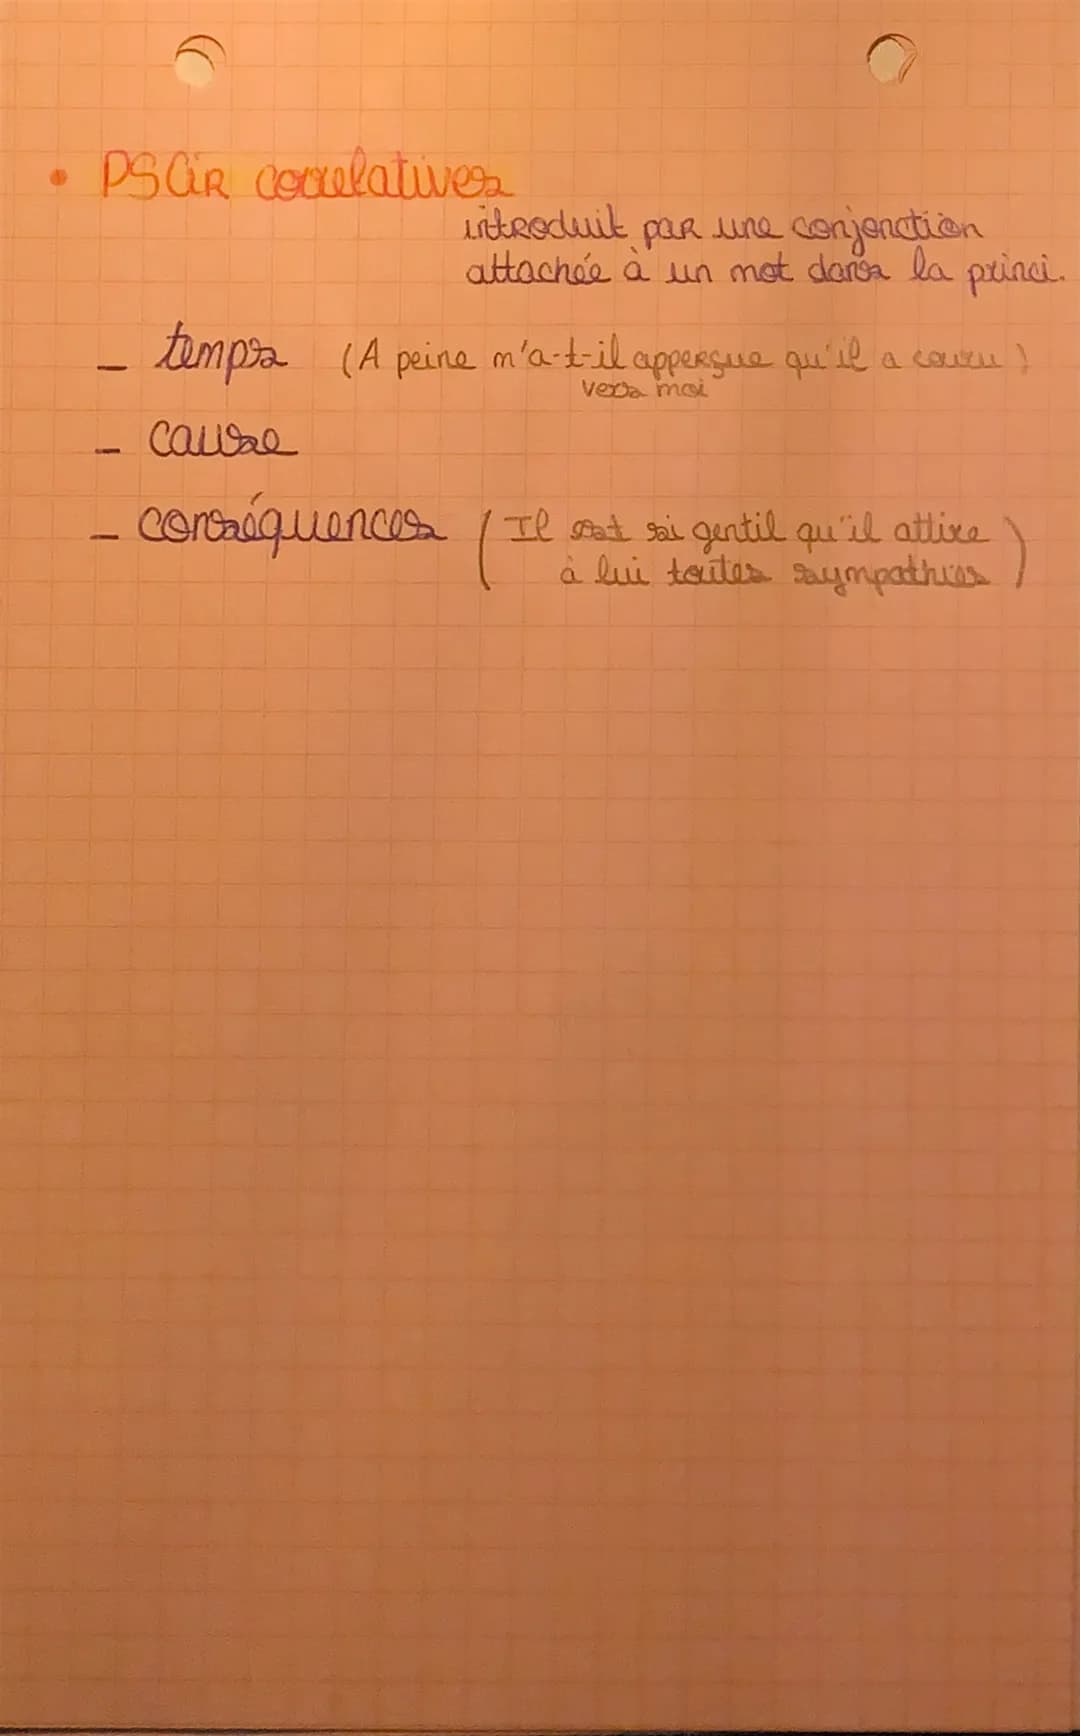 • PSCiR correlatives
introduit par une conjonction
attachée à un mot dans la princi.
- temps (A peine m'a-t-il apperçue qu'il a couru)
vers moi
- cause
- conséquences (Il est si gentil qu'il attire
à lui toutes sympathies)